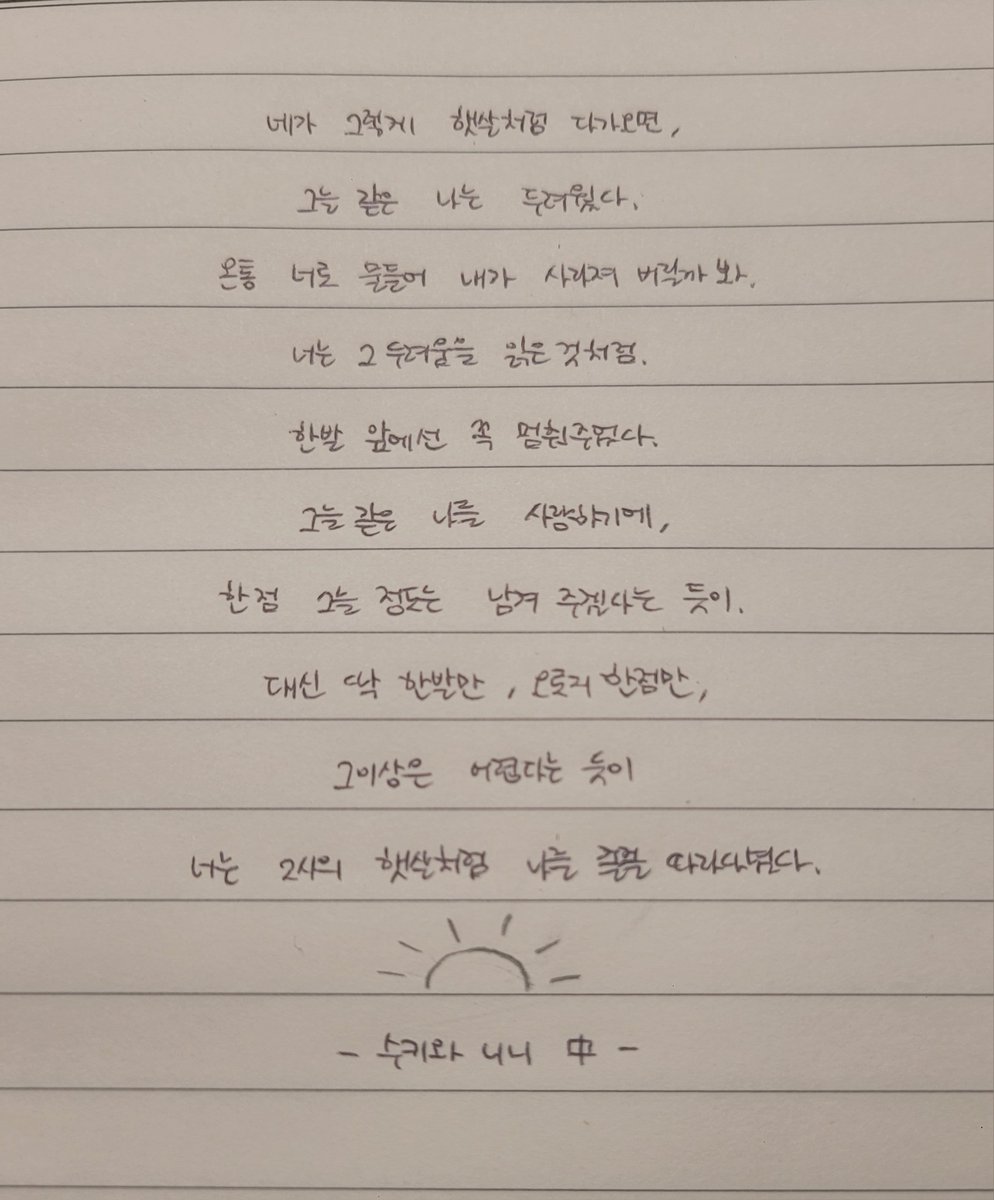 네가 그렇게 햇살처럼 다가오면,
그늘 같은 나는 두려웠다.
온통 너로 물들어 내가 사라져 버릴까 봐.
너는 그 두려움을 읽은 것처럼.
한발 앞에선 꼭 멈춰주었다.
그늘 같은 나를 사랑하기에,
한점 그늘 정도는 남겨 주겠다는 듯이.
대신 딱 한발만, 오로지 한점만,
그이상은 어렵다는 듯이
너는 2시의 햇살처럼 나를 졸졸 따라다녔다.
- 수키와 니니 中 -